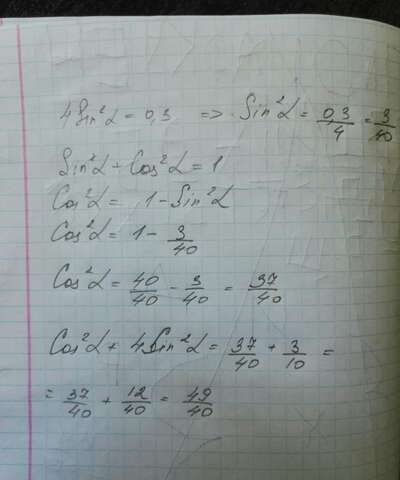 4Sin²α = 0,3 => Sin²α = 0,3/4 = 3/40
Sin²α + Cos²α = 1
Cos²α = 1 - Sin²α
Cos²α = 1 - 3/40
Cos²α = 40/40 - 3/40 = 37/40
Cos²α + 4Sin²α = 37/40 + 3/10 =
= 37/40 + 12/40 = 49/40